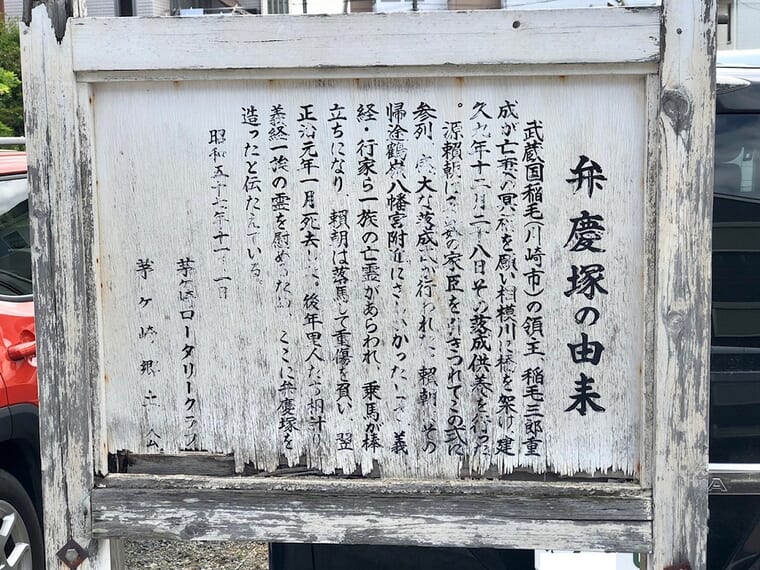 弁慶塚の由来
武蔵国稲毛(川崎市)の領主、稲毛三郎重
成が亡妻の冥福を願い相模川に橋を架け、建
久九年十二月二十八日その落成供養を行った
。源頼朝は多数の家臣を引きつれてこの式に
参列、盛大な落成式が行われた。頼朝がその
帰途鶴嶺八幡宮附近にさしかかったとき、義
経・行家ら一族の亡霊があらわれ、乗馬が棒
立ちになり、頼朝は落馬して重傷を負い、翌
正治元年一月死去した。後年里人たち相計り
義経一族の霊を慰めるため、ここに弁慶塚を
造ったと伝えている。
昭和五十 年十一月 日
茅ヶ崎ロータリークラブ
茅ヶ崎郷土会